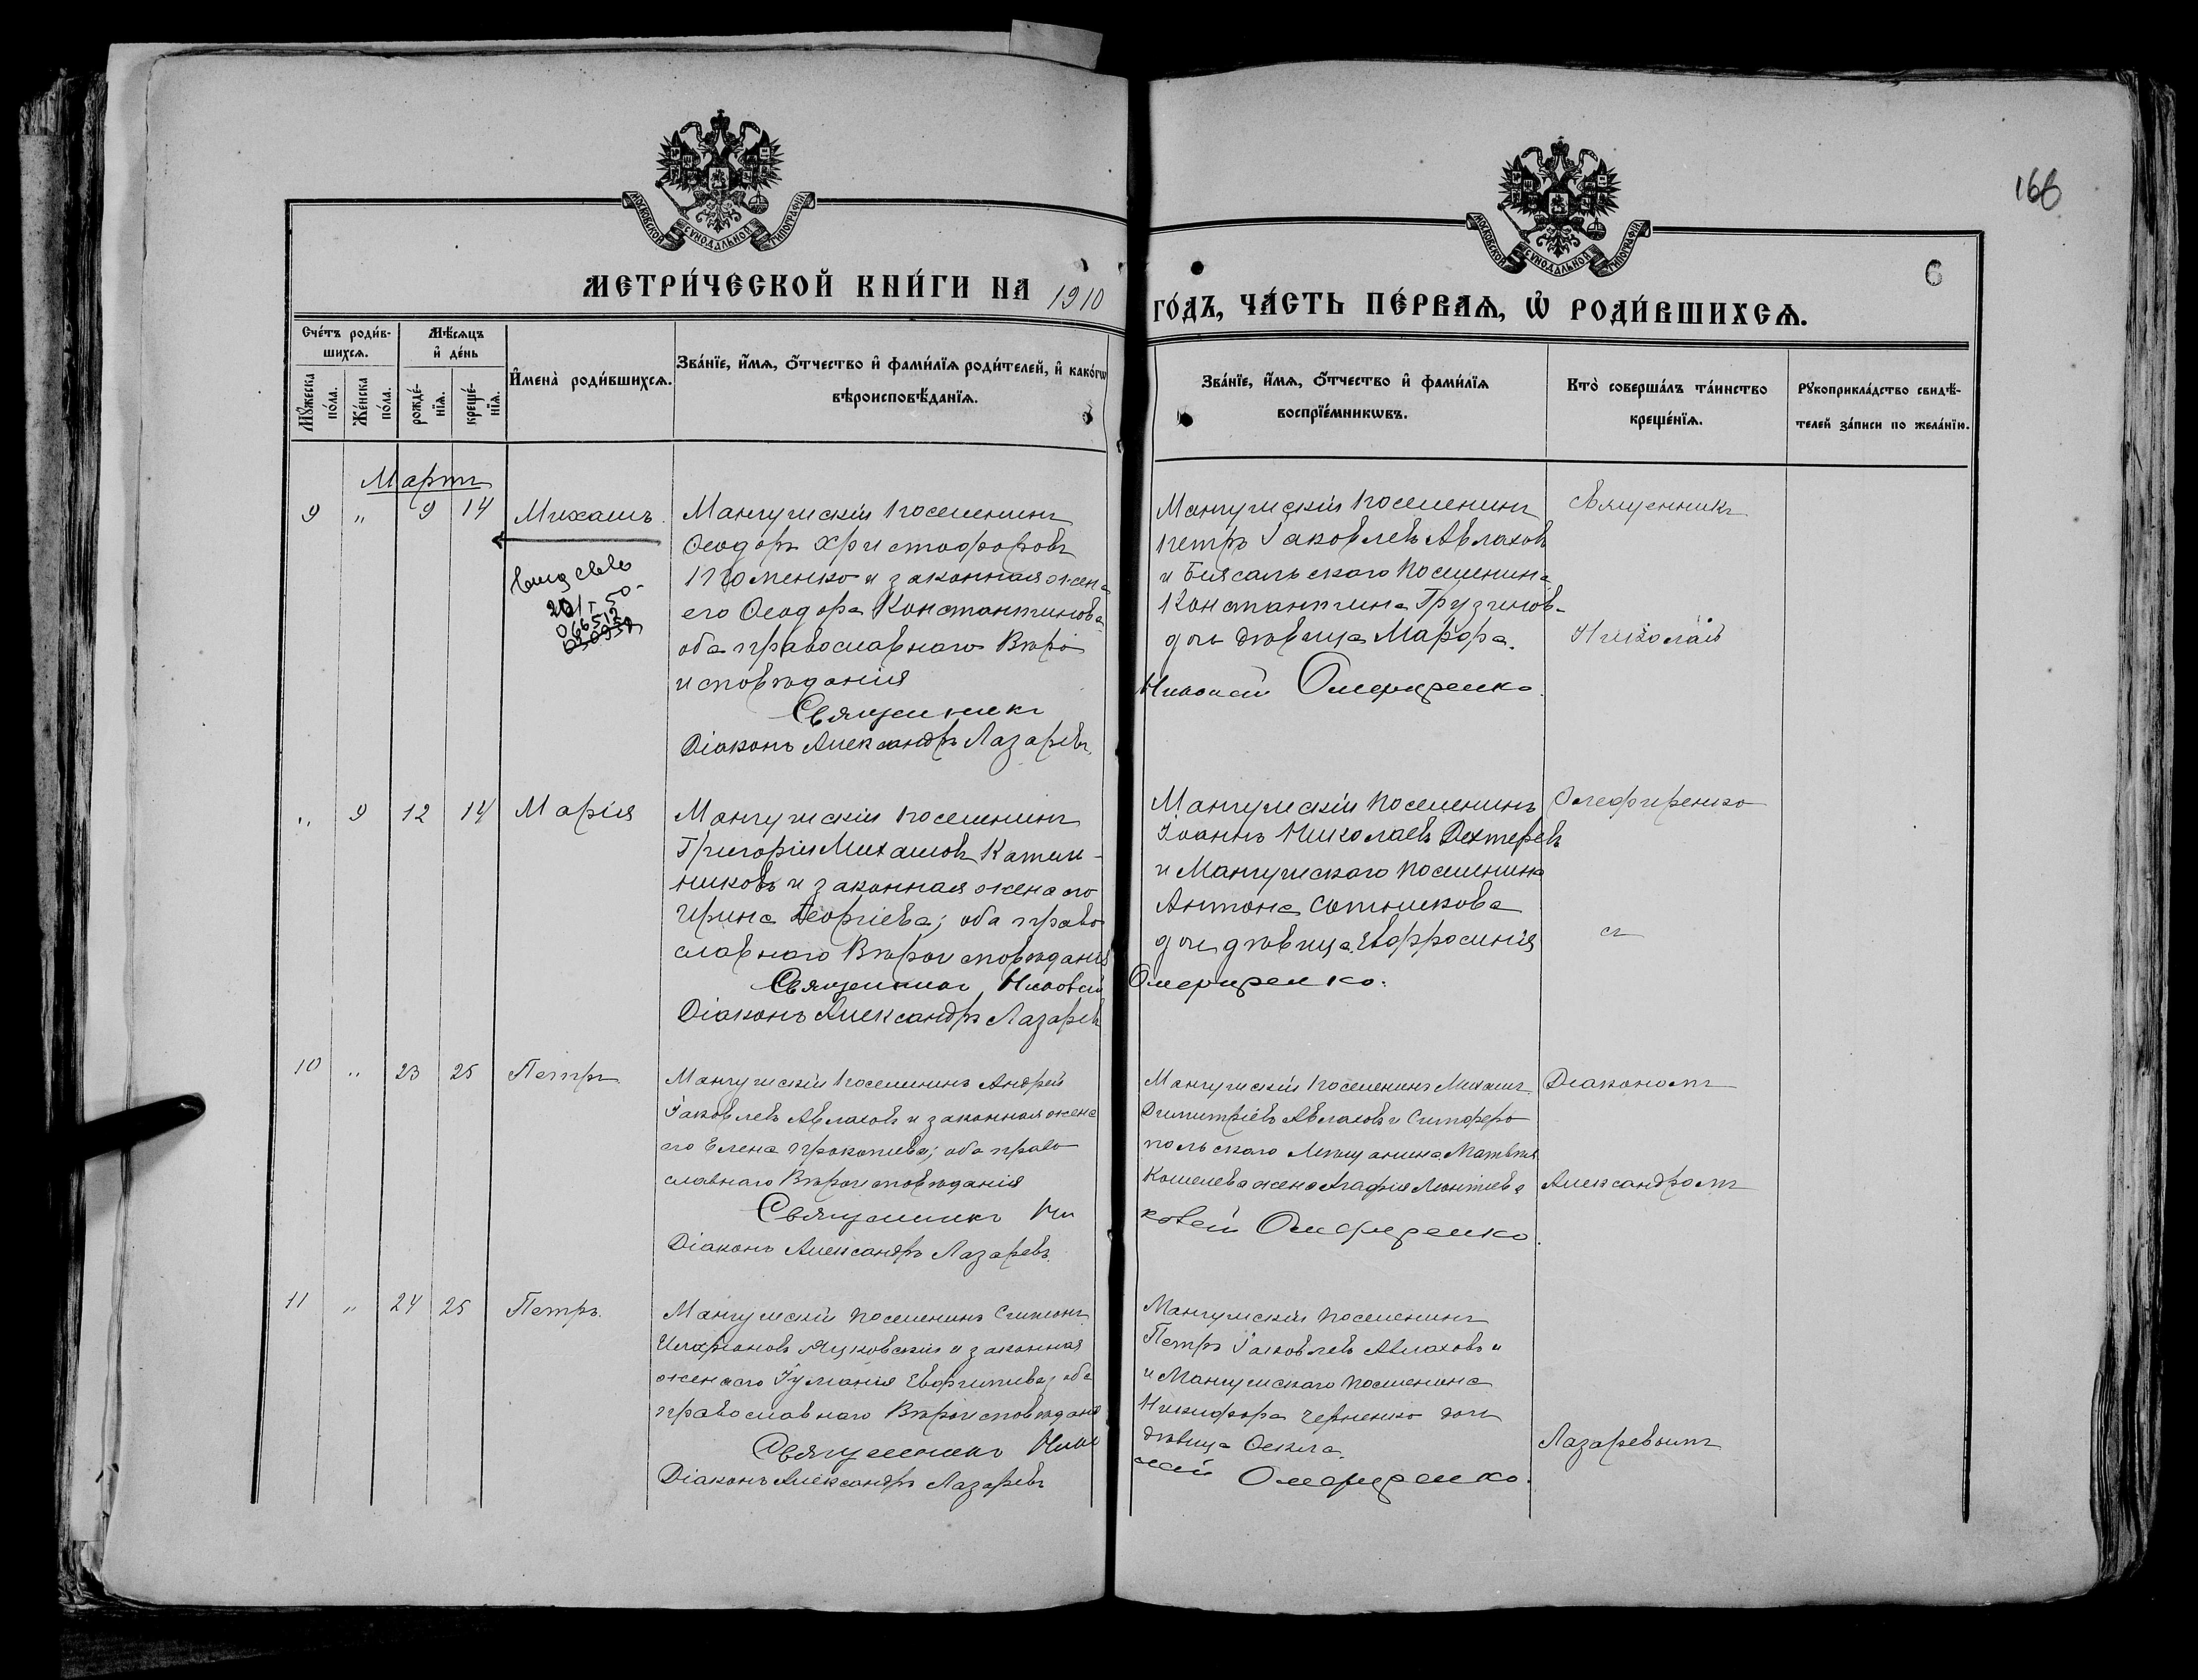 МОСКОВСКОЙ СѴНОДАЛЬНОЙ ТИПОГРАФІИ
МОСКОВСКОЙ СѴНОДАЛЬНОЙ ТИПОГРАФІИ
166
6
МЕТРИ́ЧЕСКОЙ КНИ́ГИ НА 1910
ГО́ДЪ, ЧА́СТЬ ПЕ́РВАѦ, Ѡ҆ РОДИ́ВШИХСѦ.
Сче́тъ роди́в-
шихсѧ.
Мѣ́сѧцъ
и҆ де́нь
Мꙋ́жеска по́ла.
Же́нска по́ла.
рожде́-нїѧ.
креще́-нїѧ.
И҆мена̀ роди́вшихсѧ.
Зва́нїе, и҆́мѧ, ѻ҆́тчество и҆ фами́лїѧ роди́телей, и҆ како́гѡ
вѣроисповѣ́данїѧ.
Зва́нїе, и҆́мѧ, ѻ҆́тчество и҆ фами́лїѧ
воспрїе́мникѡвъ.
Кто̀ соверша́лъ та́инство
креще́нїѧ.
Рꙋкоприкла́дство свидѣ́-
телей за́писи по жела́нїю.
Мартъ
9 " 9 14 Михаилъ.
Мангушскій поселенинъ
Ѳеодоръ Христофоровъ
и законная жена
его Ѳеодора Константинова
оба православнаго Вѣро
исповѣданія
Священникъ
Діаконъ Александръ Лазаревъ.
Мангушскій поселенинъ
Петръ Іаковлевъ Авлаховъ
и Біясальскаго поселенина
Константина Грузинов-
дочь дѣвица Марфа.
Николай Олефиренко.
Священникъ
Николай
" 9 12 14 Марія
Мангушскій поселенинъ
Григорій Михаиловъ Катель-
никовъ и законная жена его
Ирина Георгіева; оба право
славнаго Вѣроисповѣданія
Священникъ Николай
Діаконъ Александръ Лазаревъ
Мангушскій поселенинъ
Іоаннъ Николаевъ Дехтеревъ
и Мангушскаго поселенина
Антона Сотникова
дочь дѣвица Евфросинія
Олефиренко.
Олефиренко
съ
10 " 23 25 Петръ
Мангушскій поселенинъ Андрей
Іаковлевъ Авлаховъ и законная жена
его Елена Прокопіева; оба право
славнаго Вѣроисповѣданія
Священникъ Ни
Діаконъ Александръ Лазаревъ.
Мангушскій поселенинъ Михаилъ
Димитріевъ Авлаховъ и Симферо
польскаго мѣщанина Матвѣя
Кошелева жена Агафія Леонтіева
колай Олефиренко.
Діакономъ
Александромъ
11 " 24 25 Петръ.
Мангушскій поселенинъ Симеонъ
Иларіоновъ и законная
жена его Іуліанія оба
православнаго Вѣроисповѣдані
Священникъ Нико
Діаконъ Александръ Лазаревъ
Мангушскій поселенинъ
Петръ Іаковлевъ Авлаховъ и
и Мангушскаго поселенина
Никифора Черненко дочь
дѣвица Ѳекла
лай Олефиренко.
Лазаревымъ